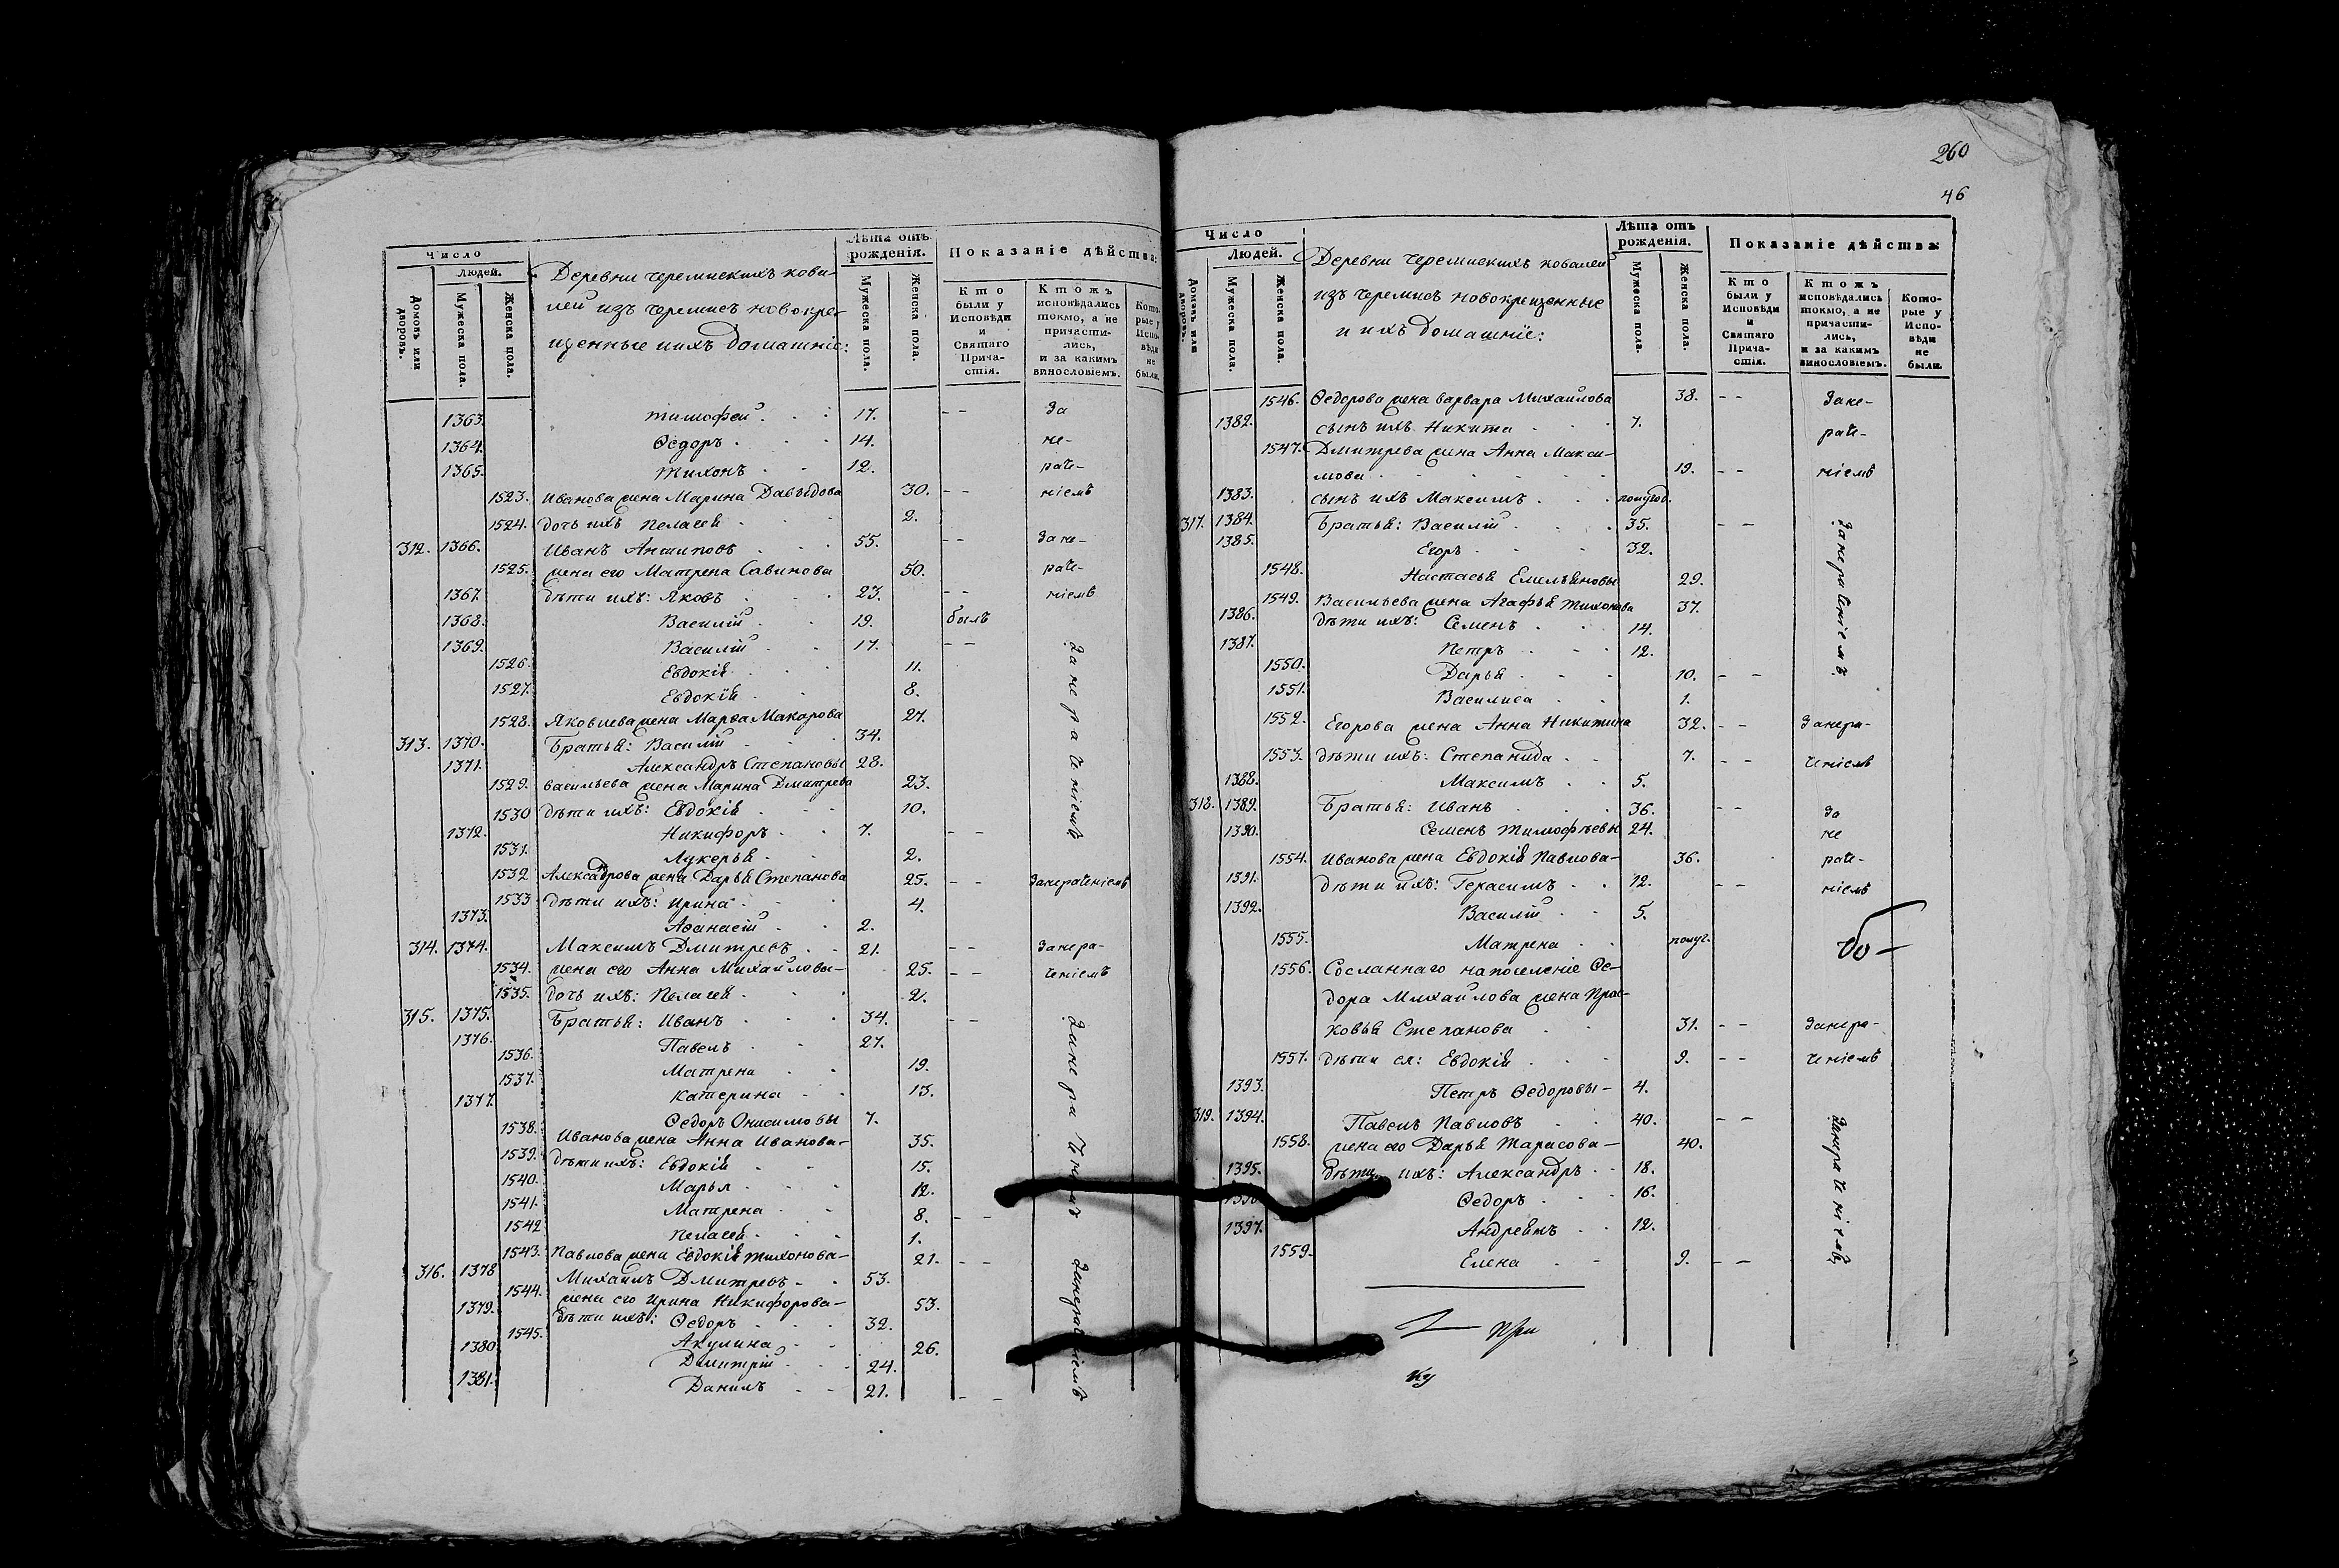 Число
Людей.
Домовъ или дворовъ.
Мужеска пола.
Женска пола.
Деревни черемискихъ кова-
лей изъ черемисъ новокре-
щенные ихъ домашніе:
Лѣта отъ рожденія.
Мужеска пола.
Женска пола.
Показаніе дѣйства:
Кто были у Исповѣди и Святаго Прича-стія.
Ктожъ исповѣдались токмо, а не причасти-лись, и за какимъ винословіемъ.
Кото-рые у Испо-вѣди не были.
1363. Тимофей 17. - - За
1364. Ѳедоръ 14. не-
1365. Тихонъ 12. раче-
1523. Иванова жена Марина Давыдова 30. - - ніемъ
1524. дочь ихъ Пелагея 2.
312. 1366. Иванъ Антиповъ 55. - - Зане-
1525. жена его Матрена Савинова 50. раче-
1367. дѣти ихъ: Яковъ 23. - - ніемъ
1368. Василій 19. былъ
1369. Василій 17. - - Занераченіемъ
1526. Евдокія 11.
1527. Евдокія 8.
1528. Яковлева жена Марѳа Макарова 27.
313. 1370. Братья: Василій 34.
1371. Александръ Степановы 28.
1529. Васильева жена Марина Дмитрева 23.
1530 дѣти ихъ: Евдокія 10.
1372. Никифоръ 7. - -
1531. Лукерья 2.
1532 Алексадрова жена Дарья Степанова 25. - - Занераченіемъ
1533 дѣти ихъ: Ирина 4.
1373. Аѳанасій 2.
314. 1374. Максимъ Дмитревъ 21. - - Занера-
1534. жена его Анна Михайлова- 25. - - ченіемъ
1535. дочь ихъ: Пелагея 2.
315. 1375. Братья: Иванъ 34. - - Занераченіемъ
1376. Павелъ 27.
1536. Матрена 19.
1537. Катерина 13.
1377. Ѳедоръ Онисимовы 7.
1538. Иванова жена Анна Иванова- 35.
1539. дѣти ихъ: Евдокія 15.
1540. Марья 12.
1541. Матрена 8. - -
1542 Пелагея 1.
1543. Павлова жена Евдокія Тихонова- 21. - -
316. 1378 Михайлъ Дмитревъ 53. Занераченіемъ
1544. жена его Ирина Никифорова- 53.
1379. дѣти ихъ: Ѳедоръ 32.
1545. Акулина 26.
1380 Дмитрій 24.
1381. Данилъ 21. - -
260
46
Число
Людей.
Домовъ или дворовъ.
Мужеска пола.
Женска пола.
Деревни черемискихъ ковалей
изъ черемисъ новокрещенные
и ихъ домашніе:
Лѣта отъ рожденія.
Мужеска пола.
Женска пола.
Показаніе дѣйства:
Кто были у Исповѣди и Святаго Прича-стія.
Ктожъ исповѣдались токмо, а не причасти-лись, и за какимъ винословіемъ.
Кото-рые у Испо-вѣди не были.
1546. Ѳедорова жена Варвара Михайлова 38. - - Зане-
1382. сынъ ихъ Никита 7. раче-
1547. Дмитрева жена Анна Макси-
мова 19. - - ніемъ
1383. сынъ ихъ Максимъ полугод.
317. 1384. Братья: Василій 35. - - Занераченіемъ
1385. Егоръ 32.
1548. Настасья Емельяновы 29.
1549. Васильева жена Агафья Тихонова 37.
1386. дѣти ихъ: Семенъ 14.
1387. Петръ 12.
1550. Дарья 10. - -
1551. Василиса 1.
1552. Егорова жена Анна Никитина 32. - - Занера-
1553. дѣти ихъ: Степанида 7. - - ченіемъ
1388. Максимъ 5.
318. 1389. Братья: Иванъ 36. - - За
1390. Семенъ Тимофѣевы 24. не
1554. Иванова жена Евдокія Павлова- 36. раче-
1391. дѣти ихъ: Герасимъ 12. - - ніемъ
1392. Василій 5.
1555. Матрена полуг.
1556. Сосланнаго на поселеніе Ѳе-
дора Михайлова жена Прас-
ковья Степанова 31. - - Занера-
1557. дѣти ея: Евдокія 9. - - ченіемъ
1393. Петръ Ѳедоровы- 4.
319. 1394. Павелъ Павловъ 40. - - Занераченіемъ
1558. жена его Дарья Тарасова- 40.
1395. дѣти ихъ: Александръ 18.
Ѳедоръ 16.
1397. Андреянъ 12.
1559. Елена 9. - -
При